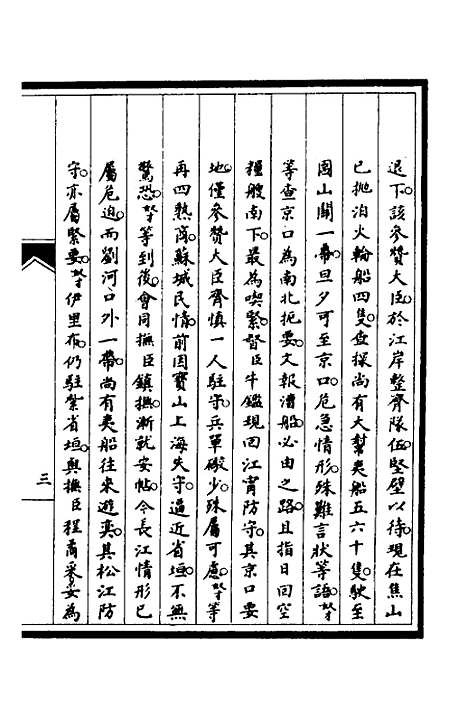 退下該參贊大臣於江岸整齊隊伍堅壁以待現在焦山
已拋泊火輪船四隻查探尚有大幫夷船五六十隻駛至
圌山關一帶旦夕可至京口危急情形殊難言狀等語弩
等查京口為南北扼要文報漕船必由之路且指日回空
糧艘南下最為喫緊督臣牛鑑現回江寗防守其京口要
地僅參贊大臣齊慎一人駐守兵單礮少殊屬可慮弩等
再四熟商蘇城民情前因寶山上海失守逼近省垣不無
驚恐弩等到後會同撫臣鎮撫漸就安帖令長江情形已
屬危迫而劉河口外一帶尚有夷船往來遊奕其松江防
守亦屬緊要弩伊里布仍駐紮省垣與撫臣程矞采妥為
三